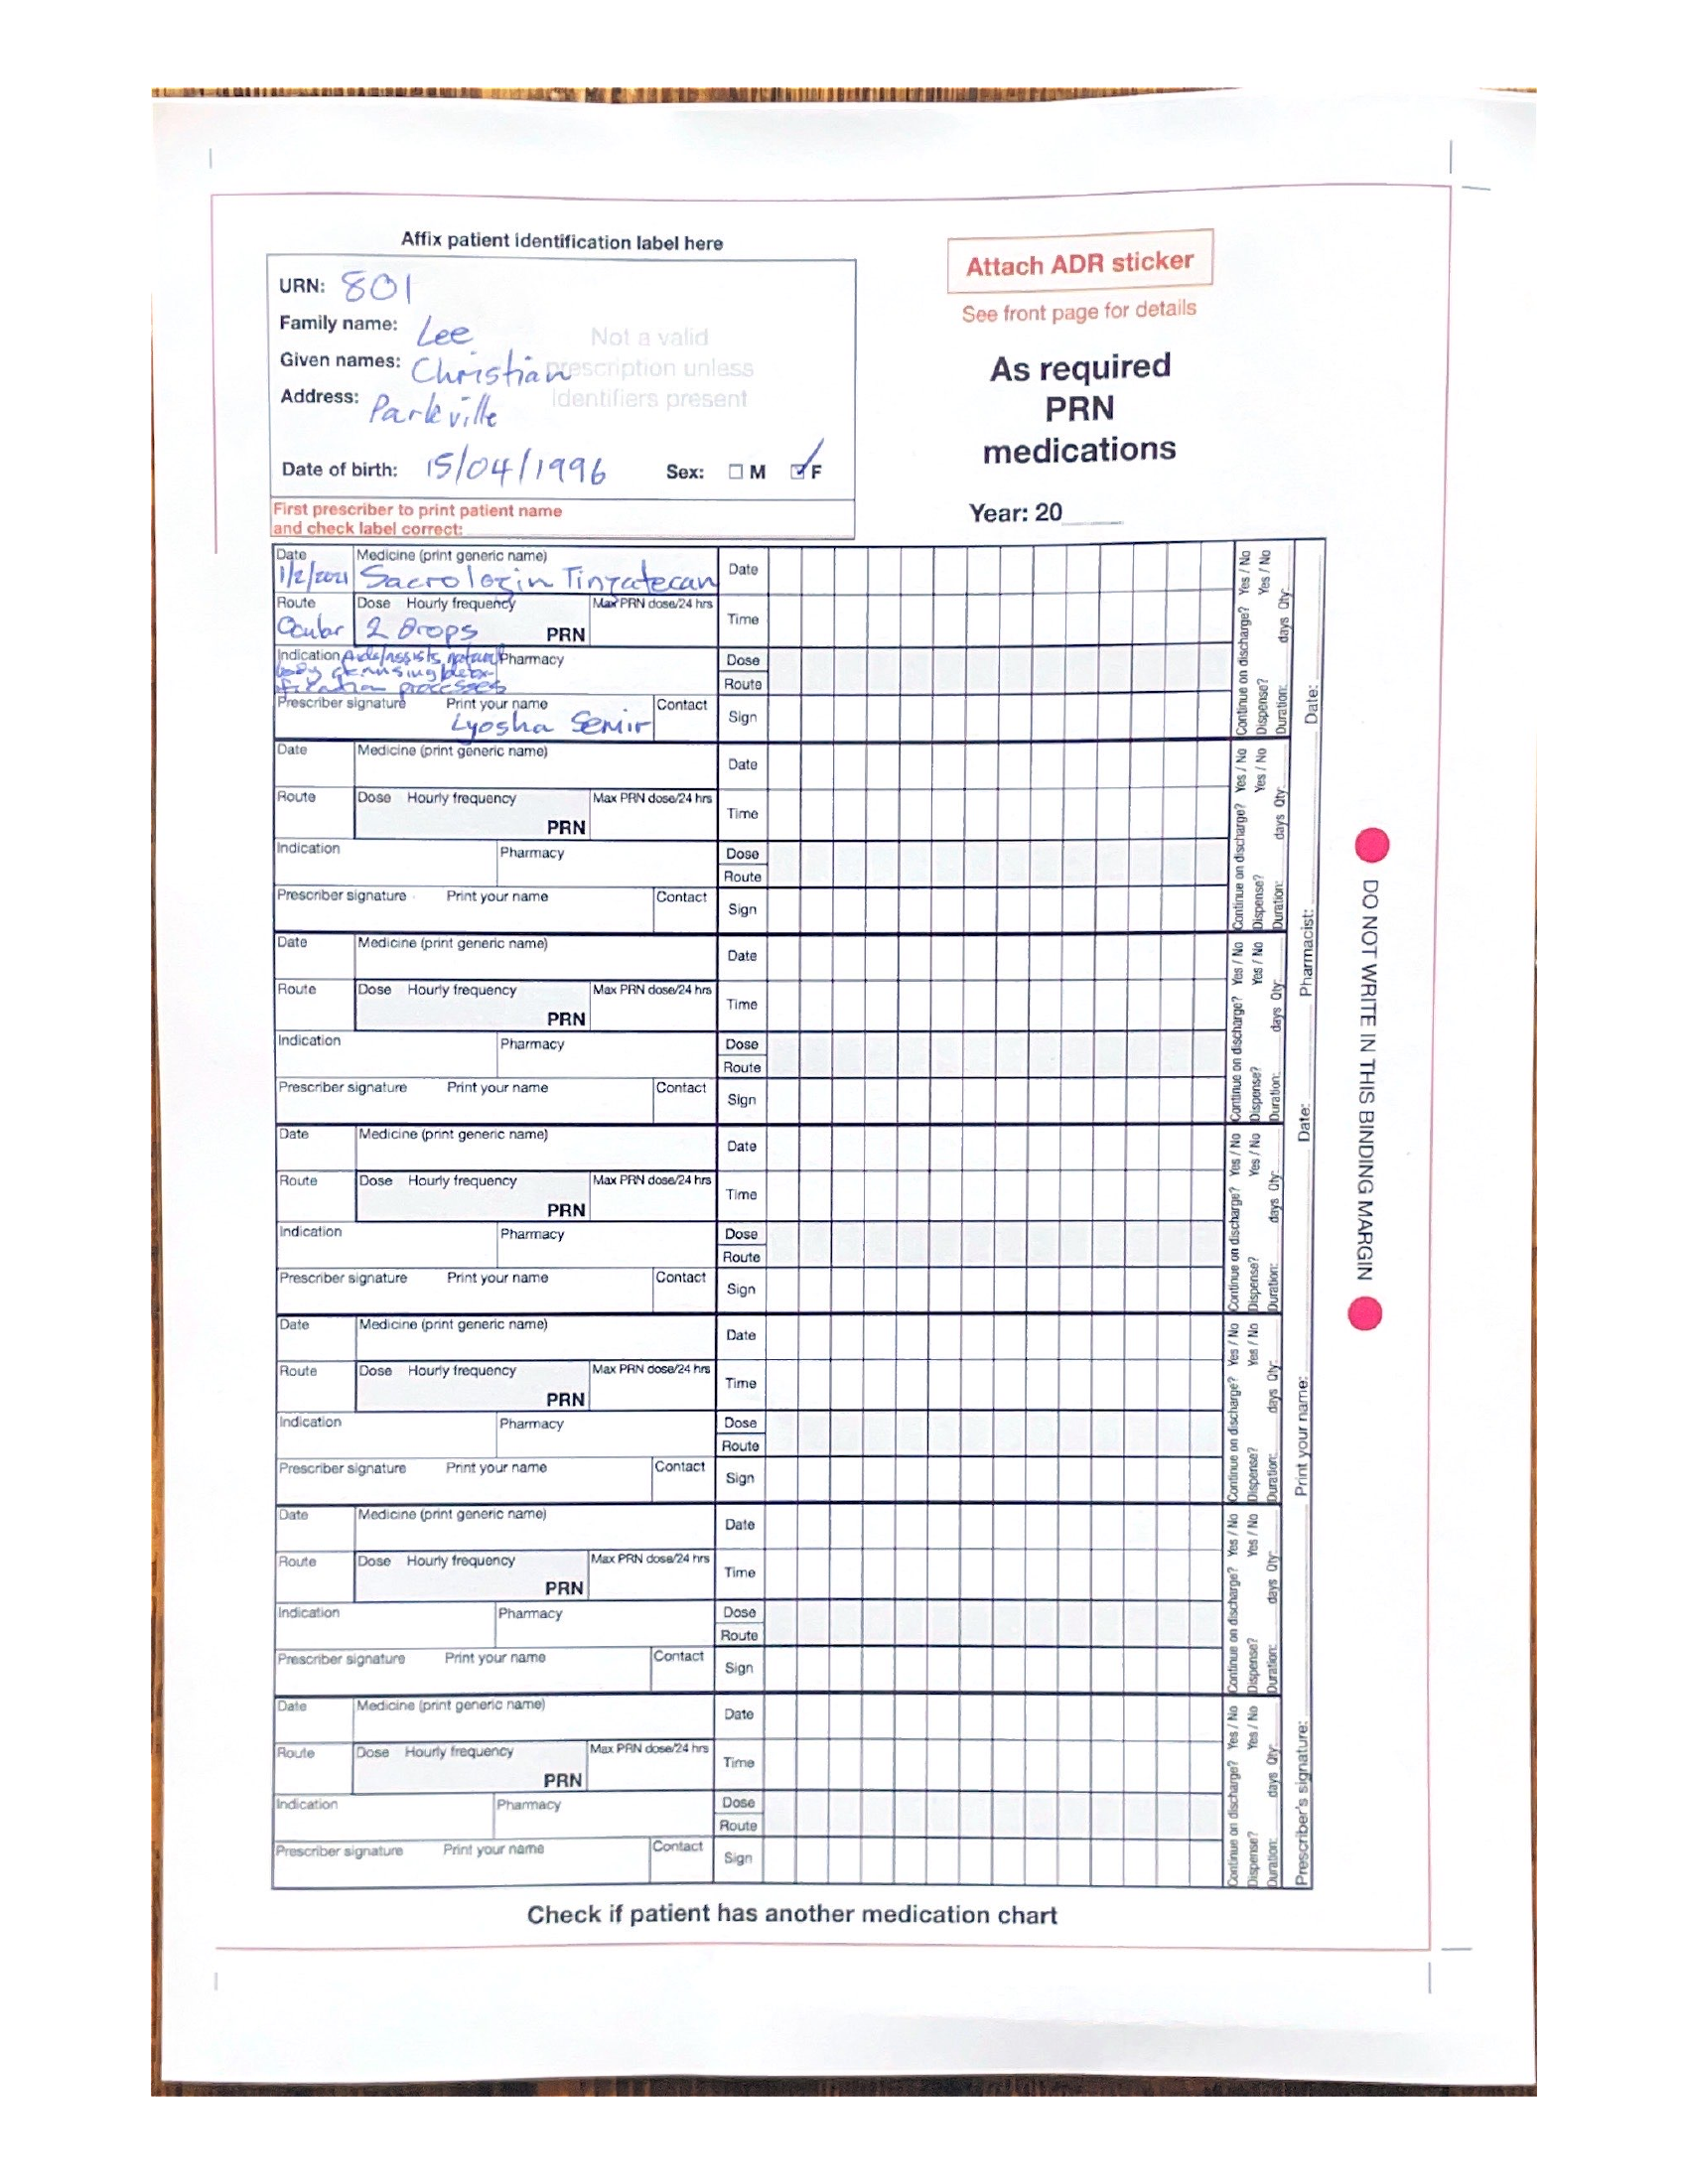 Affix patient identification label here
URN: 801
Family name: Lee
Given names: Christian
Address: Parkville
Not a valid
prescription unless
identifiers present
Date of birth: 15/04/1996 Sex: M F
First prescriber to print patient name
and check label correct:
Attach ADR sticker
See front page for details
As required
PRN
medications
Year: 20
Date Medicine (print generic name)
1/2/2021 Sacrologin Tinzatecan
Date
Route Dose Hourly frequency Max PRN dose/24 hrs
Ocular 2 Drops PRN
Time
Indication Aids/assists natural Pharmacy
body cleansing/detox-
ification processes
Dose
Route
Prescriber signature Print your name Contact
Lyosha Semir
Sign
Continue on discharge? Yes / No
Dispense? Yes / No
Duration: days Qty:
Date Medicine (print generic name)
Date
Route Dose Hourly frequency Max PRN dose/24 hrs
PRN
Time
Indication Pharmacy
Dose
Route
Prescriber signature Print your name Contact
Sign
Continue on discharge? Yes / No
Dispense? Yes / No
Duration: days Qty:
Date Medicine (print generic name)
Date
Route Dose Hourly frequency Max PRN dose/24 hrs
PRN
Time
Indication Pharmacy
Dose
Route
Prescriber signature Print your name Contact
Sign
Continue on discharge? Yes / No
Dispense? Yes / No
Duration: days Qty:
Date Medicine (print generic name)
Date
Route Dose Hourly frequency Max PRN dose/24 hrs
PRN
Time
Indication Pharmacy
Dose
Route
Prescriber signature Print your name Contact
Sign
Continue on discharge? Yes / No
Dispense? Yes / No
Duration: days Qty:
Date Medicine (print generic name)
Date
Route Dose Hourly frequency Max PRN dose/24 hrs
PRN
Time
Indication Pharmacy
Dose
Route
Prescriber signature Print your name Contact
Sign
Continue on discharge? Yes / No
Dispense? Yes / No
Duration: days Qty:
Date Medicine (print generic name)
Date
Route Dose Hourly frequency Max PRN dose/24 hrs
PRN
Time
Indication Pharmacy
Dose
Route
Prescriber signature Print your name Contact
Sign
Continue on discharge? Yes / No
Dispense? Yes / No
Duration: days Qty:
Date Medicine (print generic name)
Date
Route Dose Hourly frequency Max PRN dose/24 hrs
PRN
Time
Indication Pharmacy
Dose
Route
Prescriber signature Print your name Contact
Sign
Continue on discharge? Yes / No
Dispense? Yes / No
Duration: days Qty:
Prescriber's signature: Print your name: Date: Pharmacist: Date:
DO NOT WRITE IN THIS BINDING MARGIN
Check if patient has another medication chart